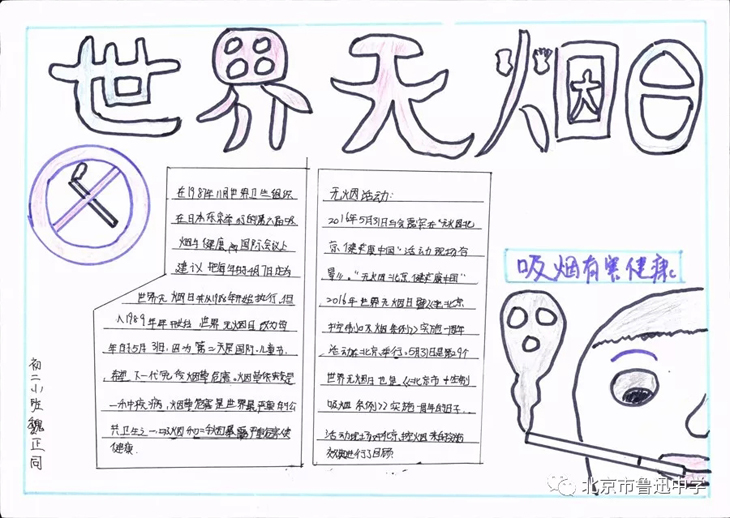 世界无烟日
在1987年11月世界卫生组织
在日本东京举行的第六届吸
烟与健康的国际会议上
建议把每年的4月7日定为
世界无烟日并从1988年开始执行,但
从1989年开始世界无烟日改为每
年的5月31日,因为第二天是国际儿童节,
希望下一代免受烟草危害。烟草依赖是
一种疾病,烟草危害是世界最严重的公
共卫生之一,吸烟和二手烟暴露严重危害
健康
无烟活动:
2016年5月31日
京 健康中国"活动现场
"无烟北京 健康中国"
2016年世界无烟日暨《北京
控制吸烟条例》实施一周年
活动在北京举行,5月31日是第29个
世界无烟日也是《北京市控制
吸烟条例》实施一周年的日子
活动现场对北京控烟
效果进行了回顾
吸烟有害健康。
初二小班魏正同
北京市鲁迅中学